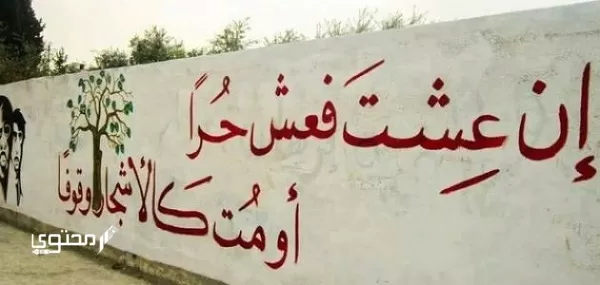 إن عِشتَ فعش حُراً
أو مُت كَالأشجار وقوفاً
محتوى